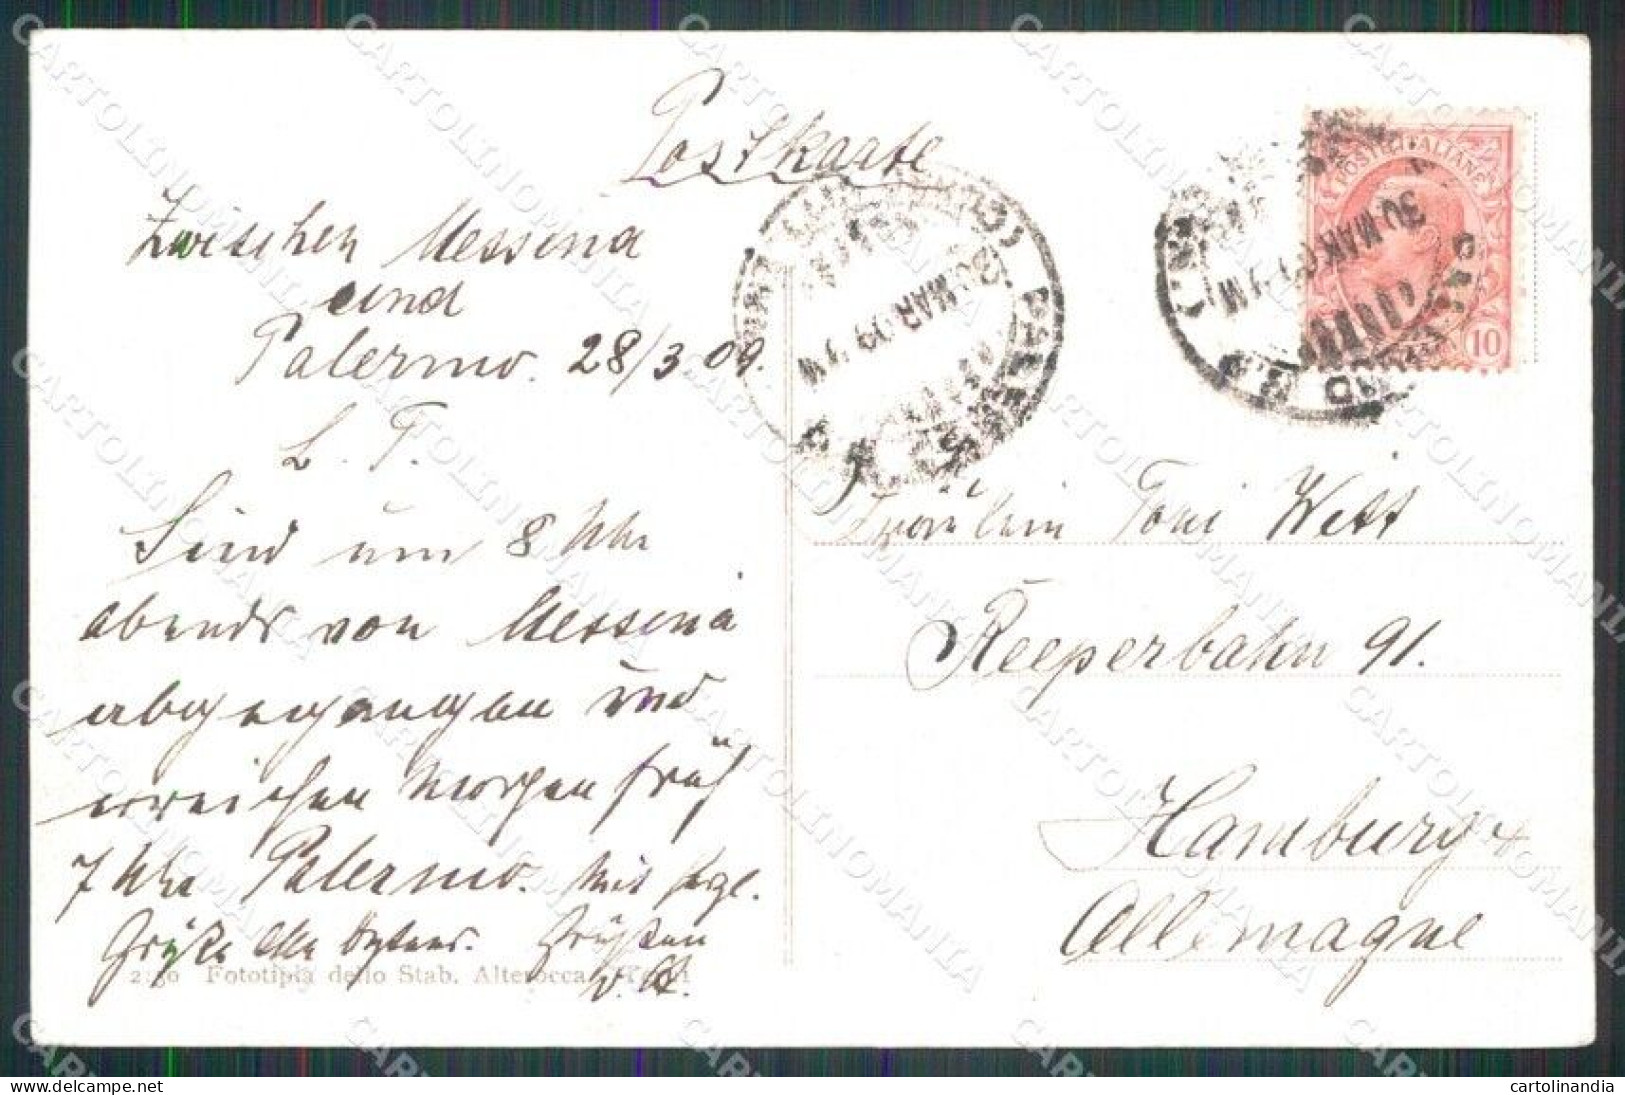 Postkarte
Zwischen Messina
und
Palermo. 28/3 09.
L. T.
Sind um 8 Uhr
abends von Messina
abgegangen und
erreichen morgen früh
7 Uhr Palermo. Mit herzl.
Grüße
Fototipia dello Stab. Alterocca - Terni
30 MAR 09
POSTE ITALIANE
30 MAR 09
10
Fräulein Toni Witt
Reeperbahn 91.
Hamburg
Allemagne
CARTOLINOMANIA
cartolinandia